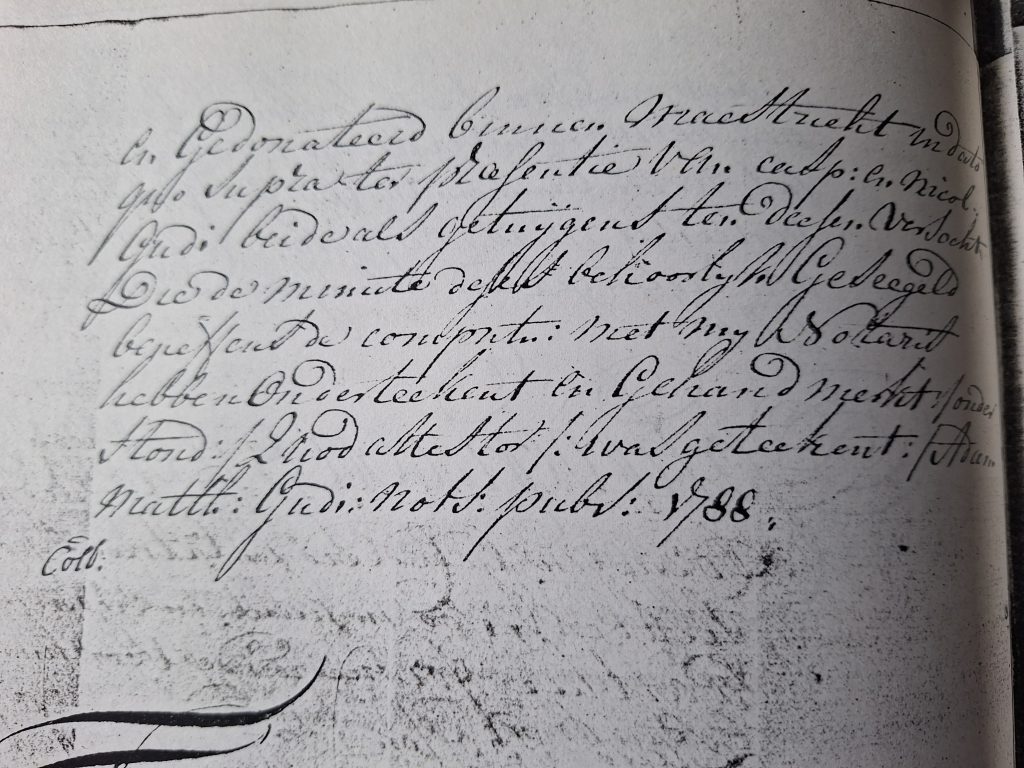 en Gedonateerd binnen Maestricht in dato
quo Supra ter præsentie van casp: en Nicol:
Gudi beide als getuijgens ten deesen versocht
Die de minute deses behoorlyk Geseegeld
beneffens de compnte: met my Notaris
hebben Onderteekent en Gehandmerkt :/onder
stond :/ Quod attestor /: was geteekent :/ Adam
Matth: Gudi: nots: pubs: 1788.
Coll: